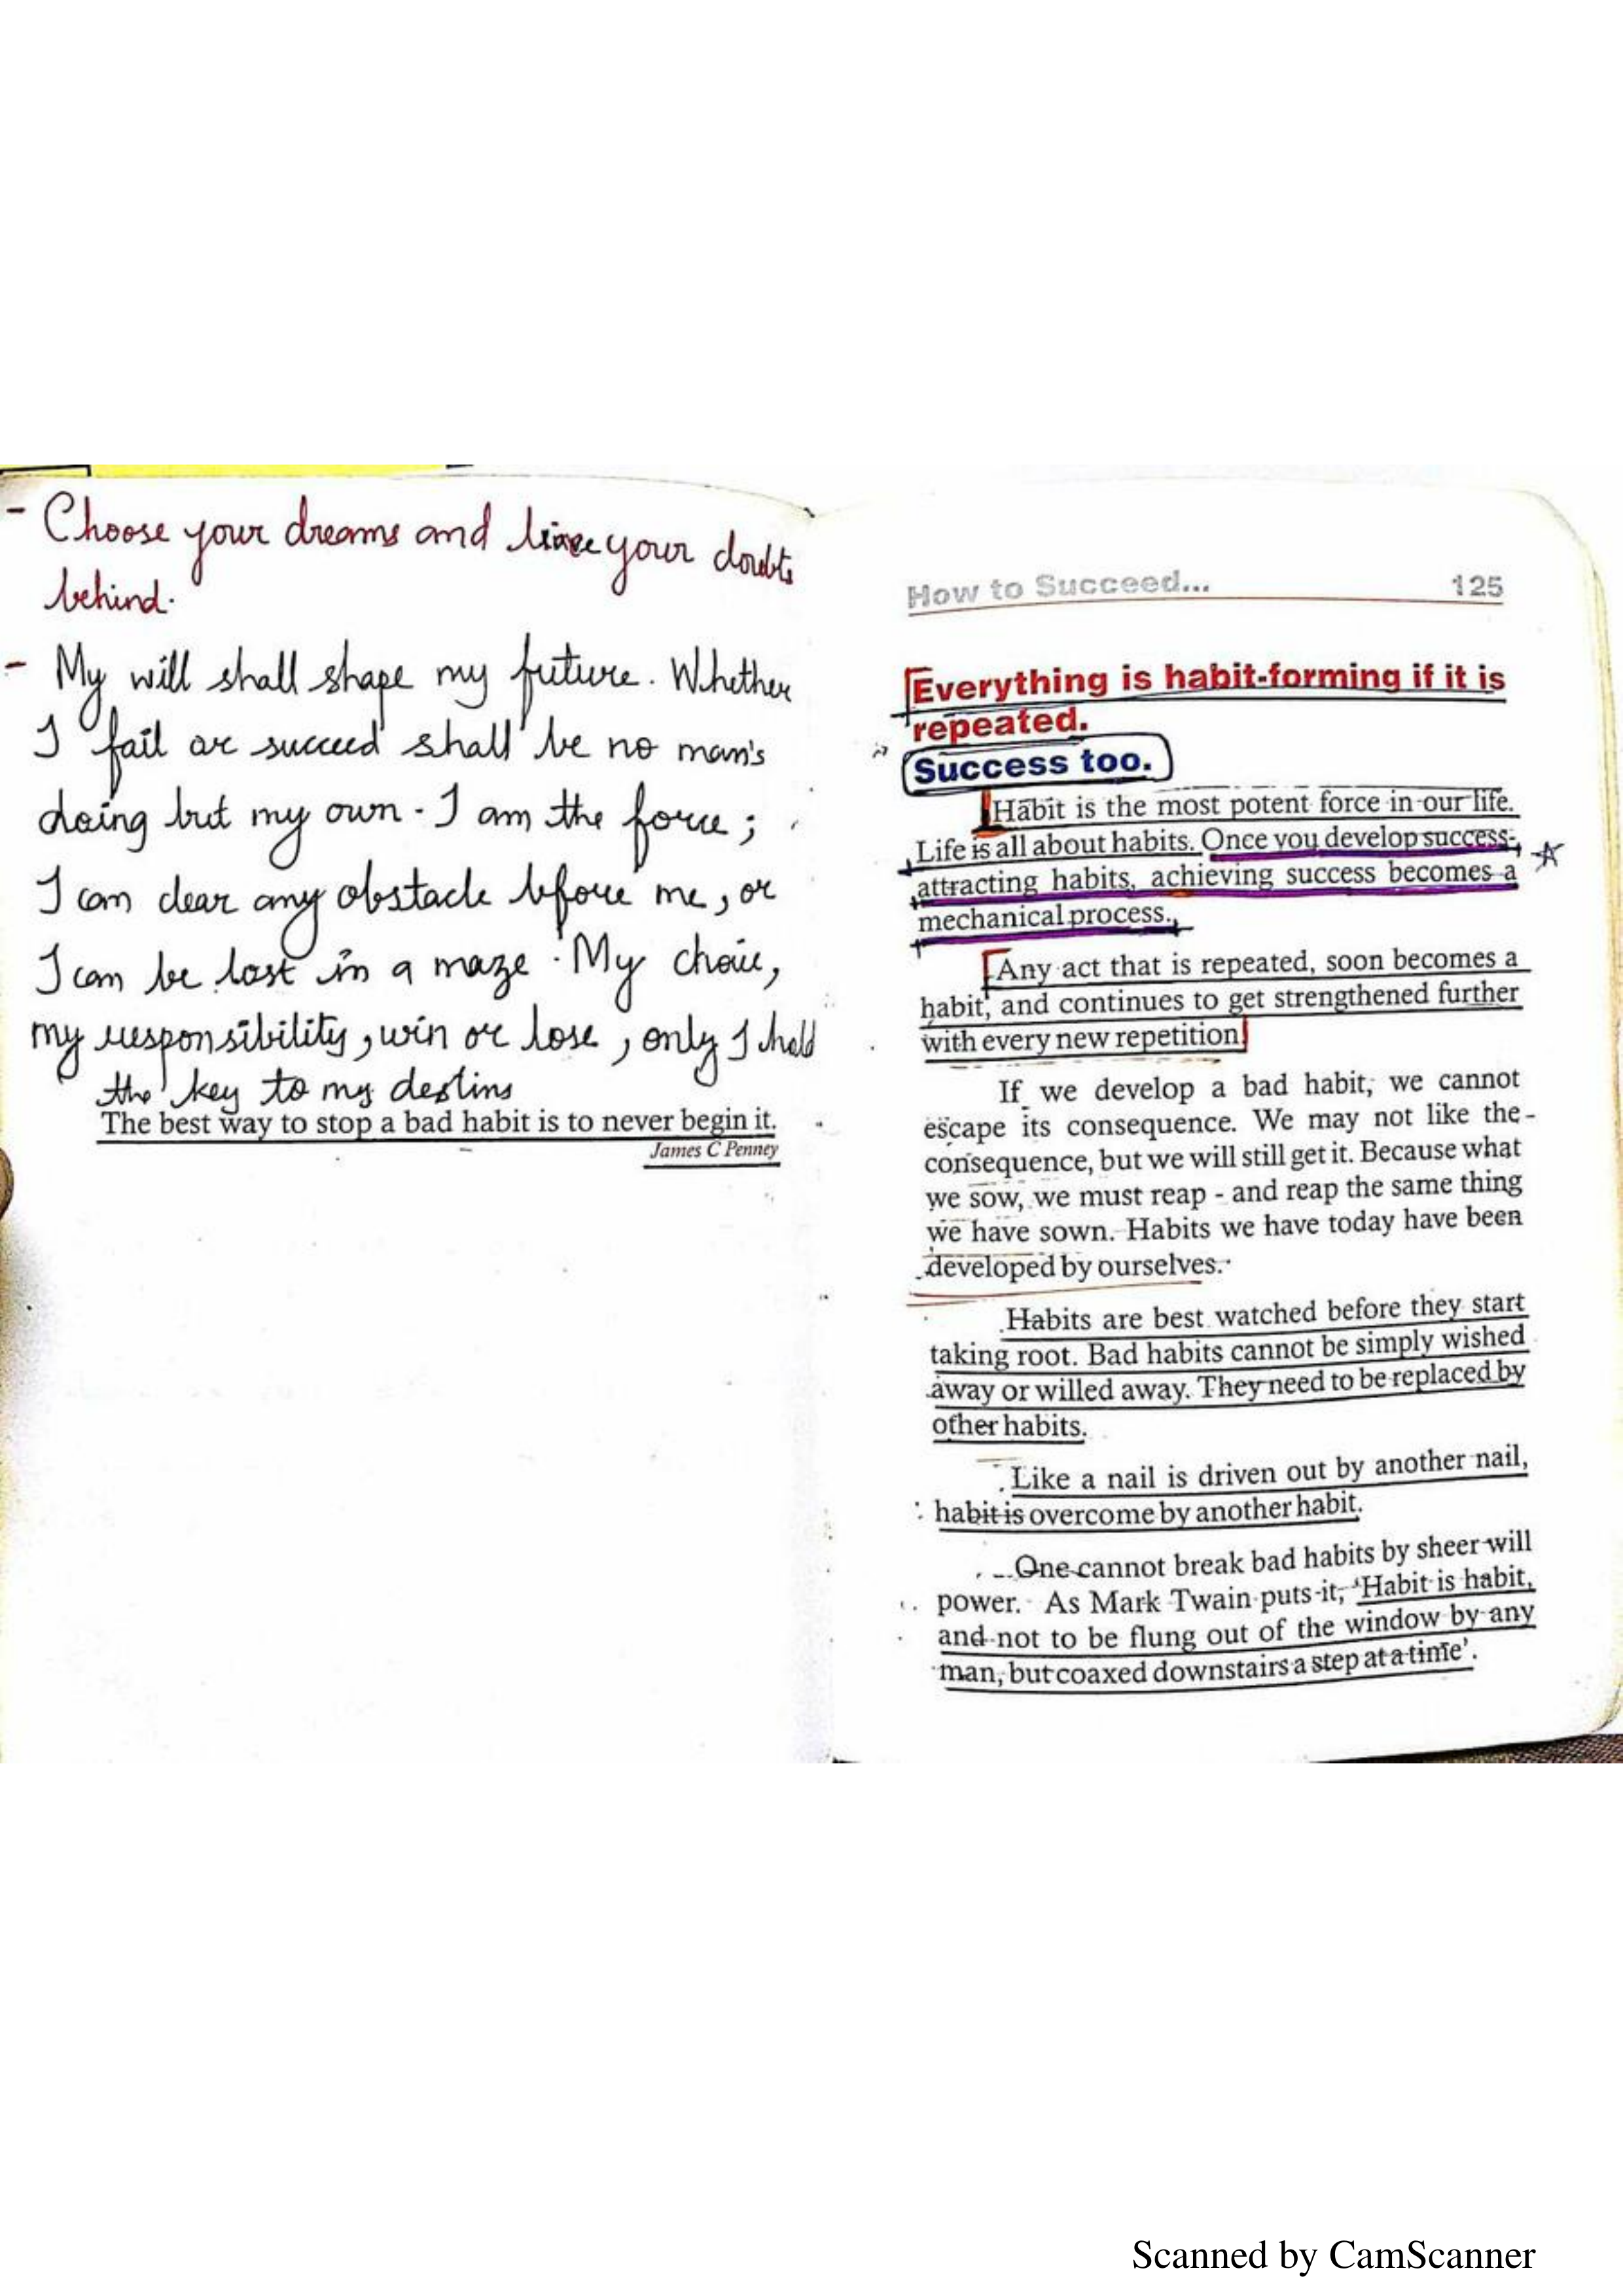 - Choose your dreams and your doubts
behind.
- My will shall shape my future. Whether
I fail or succeed shall be no man's
doing but my own. I am the force;
I can clear any obstacle before me, or
I can be lost in a maze. My choice,
my responsibility, win or lose, only I hold
the key to my
The best way to stop a bad habit is to never begin it.
James C Penney
How to Succeed... 125
Everything is habit-forming if it is
repeated.
Success too.
Habit is the most potent force in our life.
Life is all about habits. Once you develop success-
attracting habits, achieving success becomes a
mechanical process.
Any act that is repeated, soon becomes a
habit, and continues to get strengthened further
with every new repetition
If we develop a bad habit, we cannot
escape its consequence. We may not like the
consequence, but we will still get it. Because what
we sow, we must reap - and reap the same thing
we have sown. Habits we have today have been
developed by ourselves.
Habits are best watched before they start
taking root. Bad habits cannot be simply wished
away or willed away. They need to be replaced by
other habits.
Like a nail is driven out by another nail,
habit is overcome by another habit.
One cannot break bad habits by sheer will
power. As Mark Twain puts it, 'Habit is habit,
and not to be flung out of the window by any
man, but coaxed downstairs a step at a time'.
Scanned by CamScanner